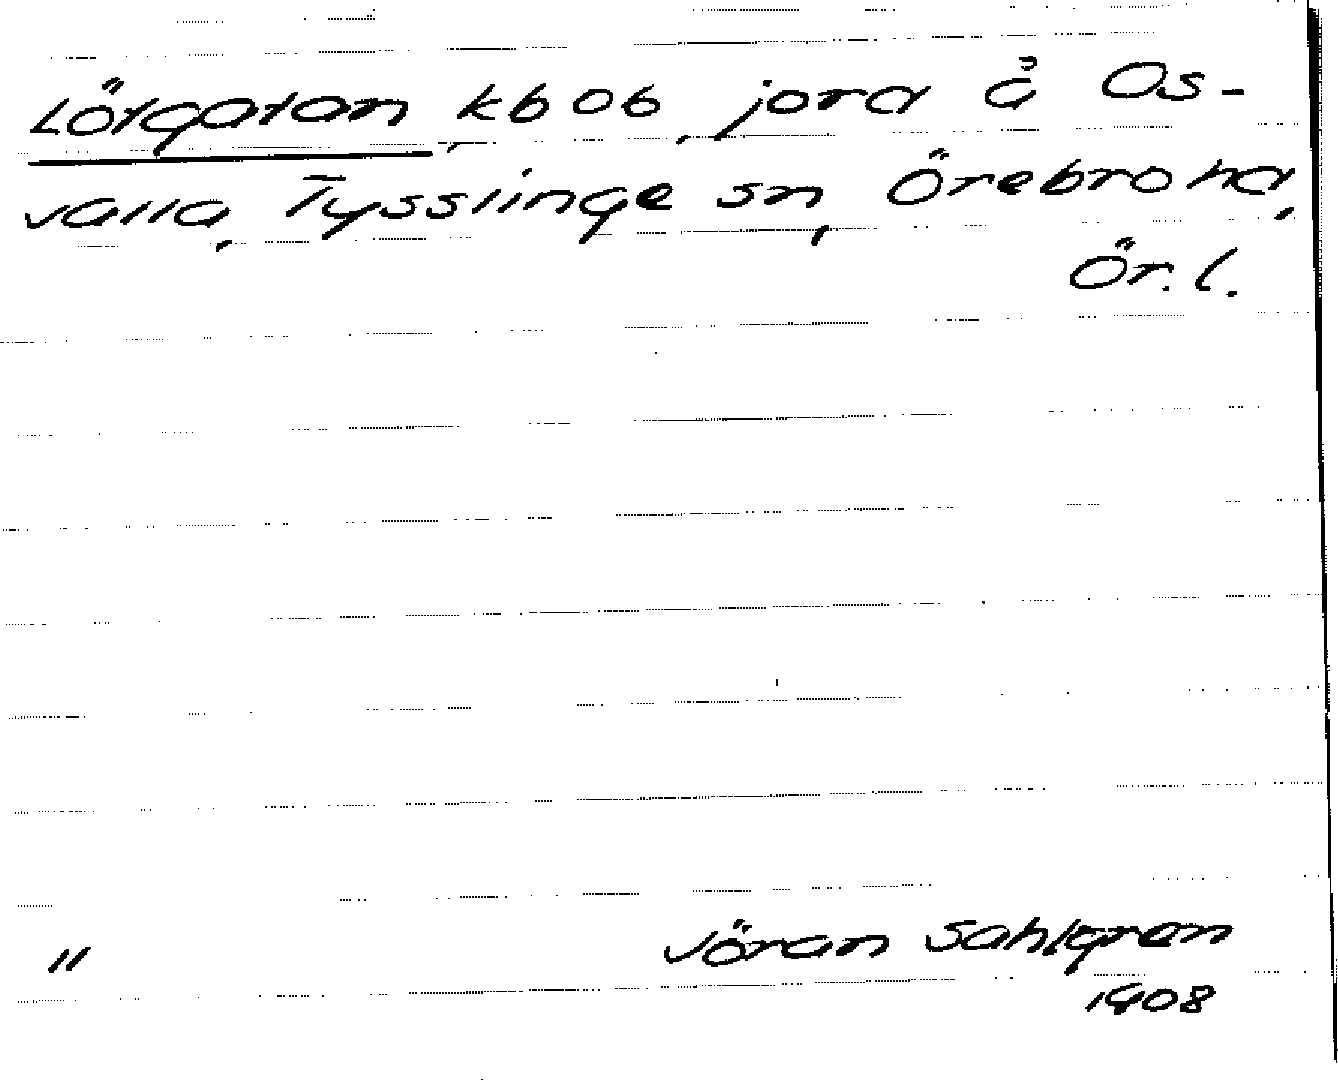 Lötgatan, kb 06, jord å Os-
valla, Tysslinge sn, Örebro hd,
Ör. l.
11
Jöran Sahlgren
1908